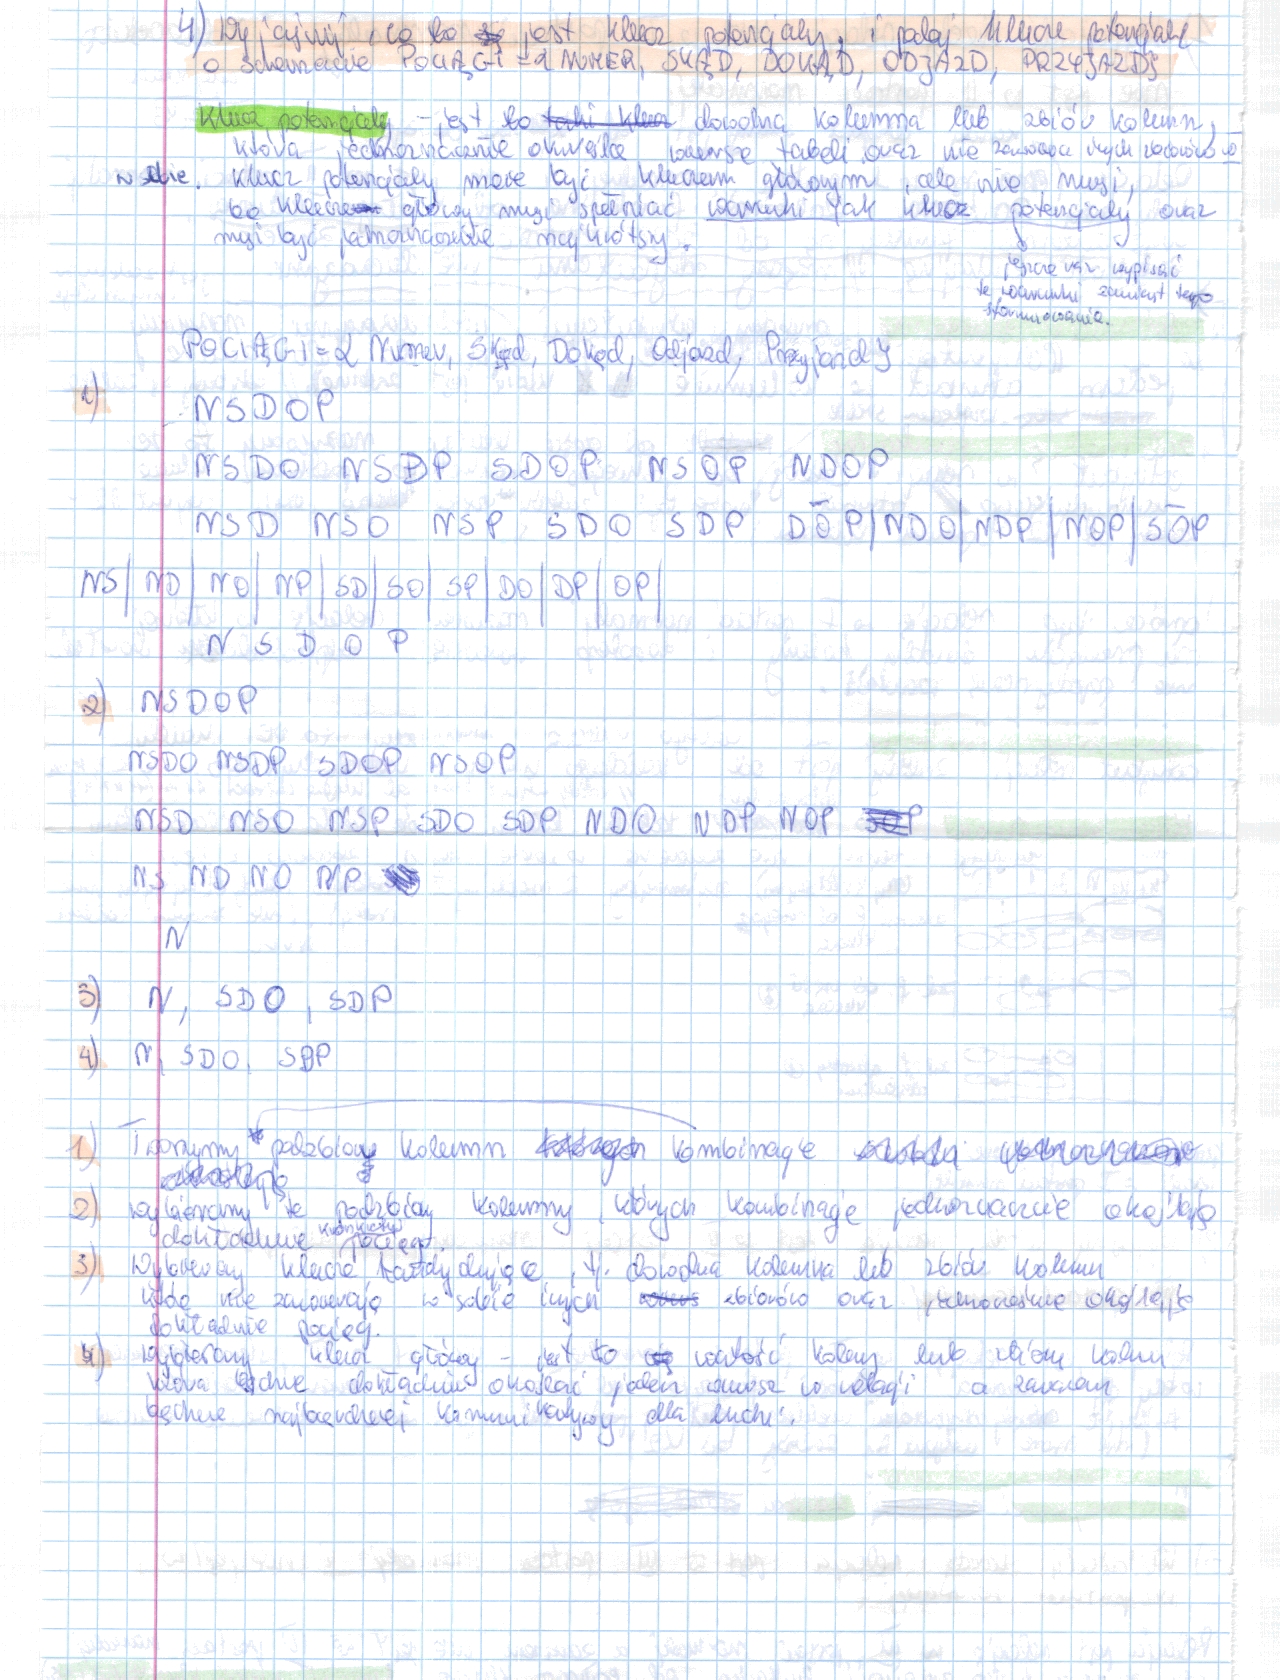 4) Wyjaśnij, co to jest klucz potencjalny, i podaj klucze potencjalne
o schemacie POCIĄGI = {NUMER, SKĄD, DOKĄD, ODJAZD, PRZYJAZD}
Klucz potencjalny - jest to taki klucz dowolna kolumna lub zbiór kolumn,
która jednoznacznie określa wiersze tabeli oraz nie zawiera innych zbiorów
w sobie. Klucz potencjalny może być kluczem głównym, ale nie musi,
bo klucz główny musi spełniać warunki jak klucz potencjalny oraz
musi być jednocześnie najkrótszy.
jeszcze raz wypisać
te warunki zamiast tego
sformułowania.
POCIĄGI = { Numer, Skąd, Dokąd, Odjazd, Przyjazd }
1)
NSDOP
NSDO NSDP SDOP NSOP NDOP
NSD NSO NSP SDO SDP DOP | NDO | NDP | NOP | SOP
NS | ND | NO | NP | SD | SO | SP | DO | DP | OP |
N S D O P
2) NSDOP
NSDO NSDP SDOP NSOP
NSD NSO NSP SDO SDP NDO NDP NOP
NS ND NO NP
N
3) N, SDO, SDP
4) N, SDO, SDP
1) Tworzymy podzbiory kolumn kombinacje
2) wybieramy te podzbiory kolumny, których kombinacje jednoznacznie określają
dokładnie konkretny pociąg.
3) Wybieramy klucze kandydujące, tj. dowolna kolumna lub zbiór kolumn
które nie zawierają w sobie innych zbiorów oraz jednoznacznie określają
dokładnie pociąg.
4) Wybieramy klucz główny - jest to wartość kolumny lub zbioru kolumn
która będzie dokładnie określać jeden wiersz w relacji a zarazem
będzie najbardziej komunikatywny dla ludzi.